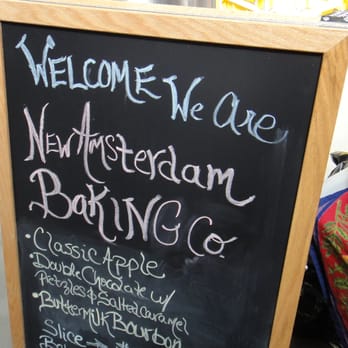 WELCOME We Are
New Amsterdam
BAKING Co.
• Classic Apple
• Double Chocolate w/
Petzles & Salted Caramel
• Buttermilk Bourbon
Slice